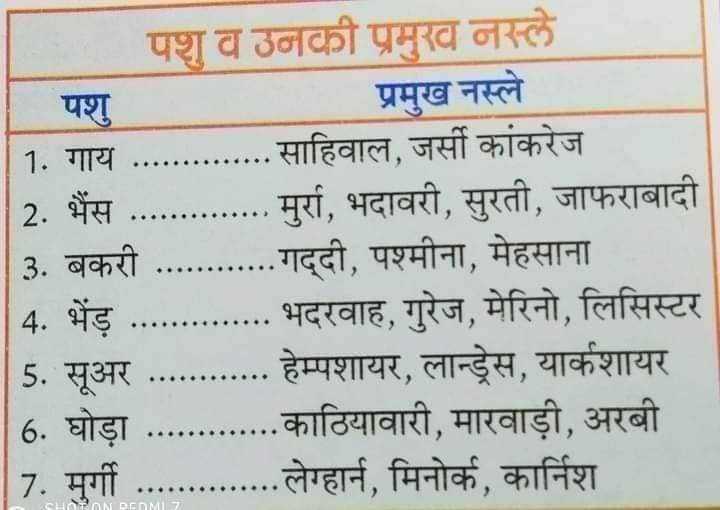 पशु व उनकी प्रमुख नस्ले
पशु प्रमुख नस्ले
1. गाय .............. साहिवाल, जर्सी कांकरेज
2. भैंस .............. मुर्रा, भदावरी, सुरती, जाफराबादी
3. बकरी ............गद्दी, पश्मीना, मेहसाना
4. भेंड़ .............. भदरवाह, गुरेज, मेरिनो, लिसिस्टर
5. सूअर ............ हेम्पशायर, लान्ड्रेस, यार्कशायर
6. घोड़ा .............काठियावारी, मारवाड़ी, अरबी
7. मुर्गी ..............लेग्हार्न, मिनोर्क, कार्निश
SHOT ON REDMI 7